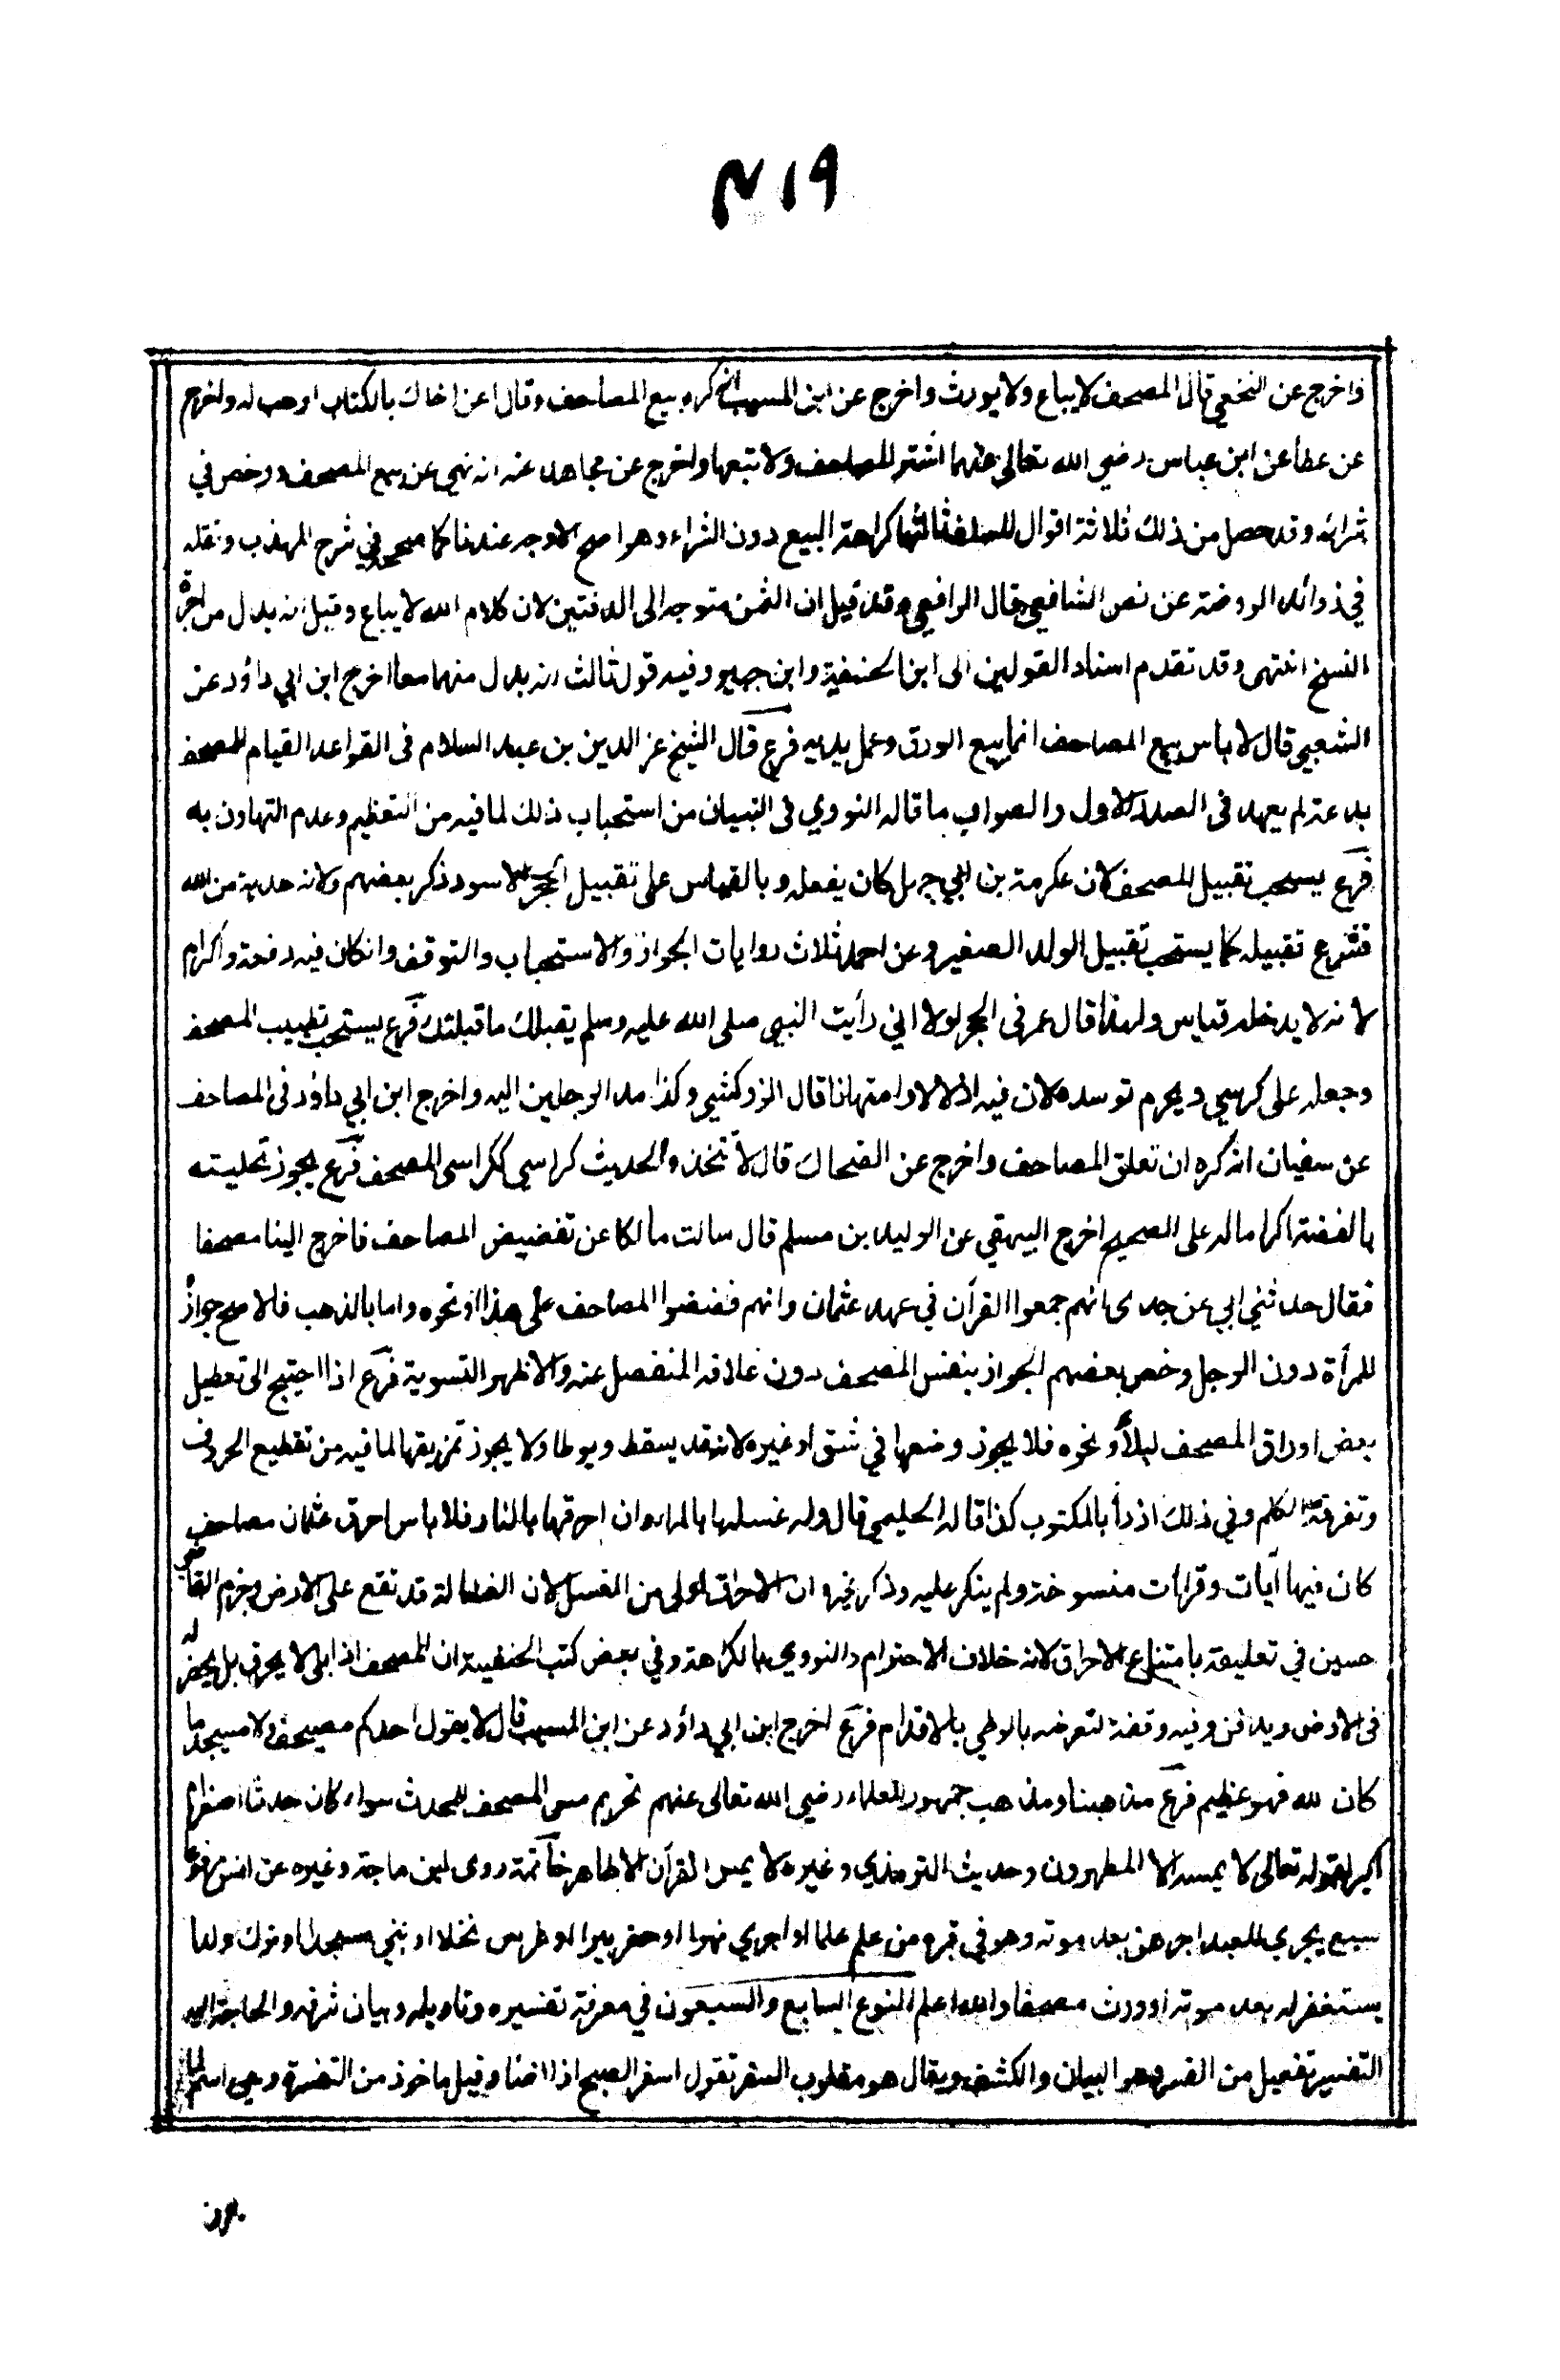 ٤١٩
واخرج عن النخعي قال المصحف لا يباع ولا يورث واخرج عن ابن المسيب انه كره بيع المصاحف وقال اعن اخاك بالكتاب او هب له واخرج
عن عطا عن ابن عباس رضي الله تعالى عنهما اشتر المصاحف ولا تبعها واخرج عن مجاهد عنه انه نهى عن بيع المصحف ورخص في
شرائه وقد حصل من ذلك ثلاثة اقوال للسلف ثالثها كراهة البيع دون الشراء وهو اصح الاوجه عندنا كما صححه في شرح المهذب ونقله
في زوائد الروضة عن نص الشافعي قال الرافعي وقد قيل ان الثمن متوجه الى الدفتين لان كلام الله لا يباع وقيل انه بدل من اجرة
النسخ انتهى وقد تقدم اسناد القولين الى ابن الحنفية وابن جبير وفيه قول ثالث انه بدل منهما معا اخرج ابن ابي داؤد عن
الشعبي قال لا باس ببيع المصاحف انما يبيع الورق وعمل يديه فرع قال الشيخ عز الدين بن عبد السلام فى القواعد القيام للمصحف
بدعة لم يعهد فى الصدر الاول والصواب ما قاله النووي فى التبيان من استحباب ذلك لما فيه من التعظيم وعدم التهاون به
فرع يستحب تقبيل المصحف لان عكرمة بن ابي جهل كان يفعله وبالقياس على تقبيل الحجر الاسود ذكره بعضهم ولانه هدية من الله
فشرع تقبيله كما يستحب تقبيل الولد الصغير وعن احمد ثلاث روايات الجواز والاستحباب والتوقف وان كان فيه رفعة واكرام
لانه لا يدخله قياس ولهذا قال عمر فى الحجر لولا اني رأيت النبي صلى الله عليه وسلم يقبلك ما قبلتك فرع يستحب تطييب المصحف
وجعله على كرسي ويحرم توسده لان فيه اذلالا وامتهانا قال الزركشي وكذا مد الرجلين اليه واخرج ابن ابي داؤد فى المصاحف
عن سفيان انه كره ان تعلق المصاحف واخرج عن الضحاك قال لا تتخذوا للحديث كراسي ككراسى المصحف فرع يجوز تحليته
بالفضة اكراما له على الصحيح اخرج البيهقي عن الوليد بن مسلم قال سالت مالكا عن تفضيض المصاحف فاخرج الينا مصحفا
فقال حدثني ابي عن جدى انهم جمعوا القرآن في عهد عثمان وانهم فضضوا المصاحف على هذا او نحوه واما بالذهب فالاصح جوازه
للمرأة دون الرجل وخص بعضهم الجواز بنفس المصحف دون غلافه المنفصل عنه والاظهر التسوية فرع اذا احتيج الى تعطيل
بعض اوراق المصحف لبلاء ونحوه فلا يجوز وضعها في شق او غيره لانه قد يسقط ويوطا ولا يجوز تمزيقها لما فيه من تقطيع الحروف
وتفرقة الكلم وفي ذلك ازراء بالمكتوب كذا قاله الحليمي قال وله غسلها بالماء وان احرقها بالنار فلا باس احرق عثمان مصاحف
كان فيها آيات وقراءات منسوخة ولم ينكر عليه وذكر غيره ان الاحراق اولى من الغسل لان الغسالة قد تقع على الارض وجزم القاضي
حسين في تعليقه بامتناع الاحراق لانه خلاف الاحترام والنووي بالكراهة وفي بعض كتب الحنفية ان المصحف اذا بلى لا يحرق بل يحفر له
فى الارض ويدفن وفيه وقفة لتعرضه بالوطي بالاقدام فرع اخرج ابن ابي داؤد عن ابن المسيب قال لا يقول احدكم مصيحف ولا مسيجد ما
كان لله فهو عظيم فرع مذهبنا ومذهب جمهور العلماء رضي الله تعالى عنهم تحريم مس المصحف للمحدث سواء كان حدثا اصغر ام
اكبر لقوله تعالى لا يمسه الا المطهرون وحديث الترمذي وغيره لا يمس القرآن الا طاهر خاتمة روى ابن ماجة وغيره عن انس مرفوعا
سبع يجري للعبد اجرهن بعد موته وهو في قبره من علم علما او اجري نهرا او حفر بيرا او غرس نخلا او بنى مسجدا او ترك ولدا
يستغفر له بعد موته او ورث مصحفا والله اعلم النوع السابع والسبعون في معرفة تفسيره وتاويله وبيان شرفه والحاجة اليه
التفسير تفعيل من الفسر وهو البيان والكشف ويقال هو مقلوب السفر تقول اسفر الصبح اذا اضاء وقيل ماخوذ من التفسرة وهي اسم لما